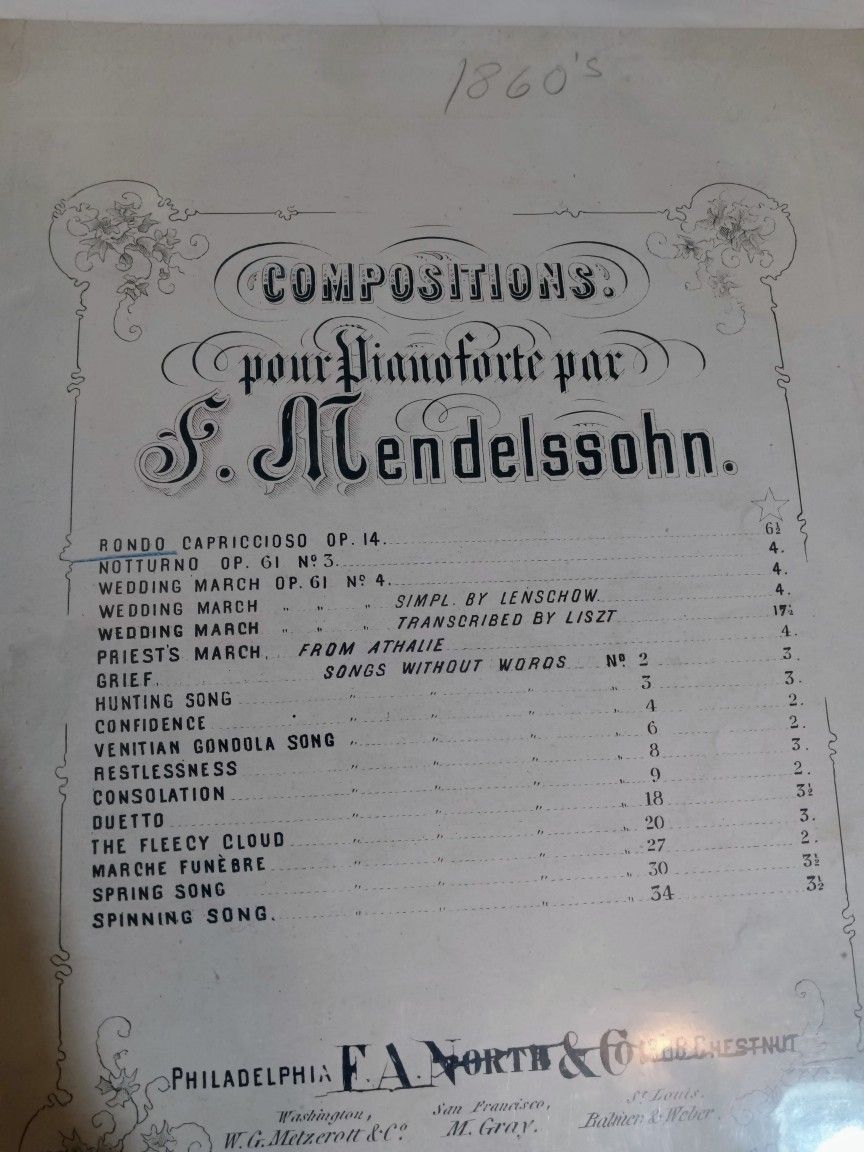 1860's
COMPOSITIONS.
pour Pianoforte par
F. Mendelssohn.
RONDO CAPRICCIOSO OP. 14. 6½
NOTTURNO OP. 61 Nº 3. 4.
WEDDING MARCH OP. 61 Nº 4. 4.
WEDDING MARCH " " " SIMPL. BY LENSCHOW. 4.
WEDDING MARCH " " " TRANSCRIBED BY LISZT 17½
PRIEST'S MARCH, FROM ATHALIE 4.
GRIEF, SONGS WITHOUT WORDS Nº 2 3.
HUNTING SONG " " " 3 3.
CONFIDENCE " " " 4 2.
VENITIAN GONDOLA SONG " " " 6 2.
RESTLESSNESS " " " 8 3.
CONSOLATION " " " 9 2.
DUETTO " " " 18 3½
THE FLEECY CLOUD " " " 20 3.
MARCHE FUNÈBRE " " " 27 2.
SPRING SONG " " " 30 3½
SPINNING SONG. " " " 34 3½
PHILADELPHIA F. A. NORTH & Co CHESTNUT
Washington, San Francisco, St Louis.
W. G. Metzerott & Co. M. Gray. Balmer & Weber.